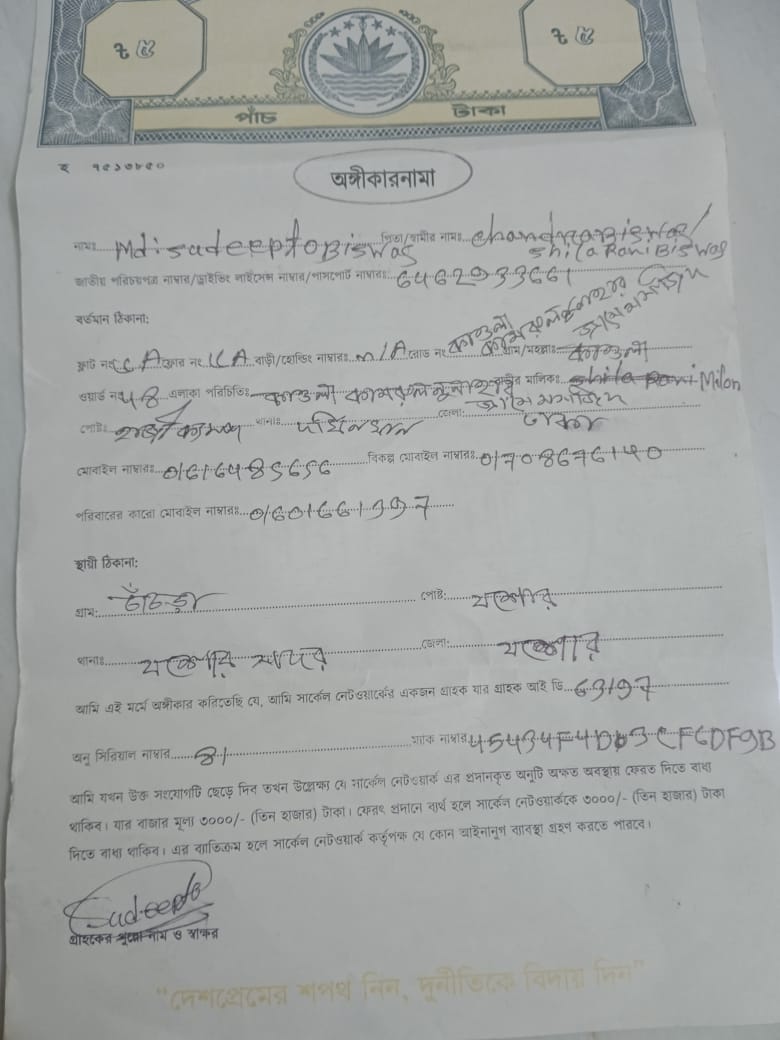 ৳ ৫ ৳ ৫
পাঁচ টাকা
৭৫১৩৮৫০
অঙ্গীকারনামা
নামঃ Md: sudeepto Biswas পিতা/স্বামীর নামঃ chandra Biswas/
shila Rani Biswas
জাতীয় পরিচয়পত্র নাম্বার/ড্রাইভিং লাইসেন্স নাম্বার/পাসপোর্ট নাম্বারঃ 6462933661
বর্তমান ঠিকানা:
ফ্লাট নং ফ্লোর নং বাড়ী/হোল্ডিং নাম্বারঃ N/A রোড নং কাওলা গ্রাম/মহল্লাঃ কাওলা
জামে মসজিদ
ওয়ার্ড নং 48 এলাকা পরিচিতিঃ কাওলা বাড়ীর মালিকঃ shila Rani Milon
জামে মসজিদ
পোষ্টঃ থানাঃ দক্ষিনখান জেলা: ঢাকা
মোবাইল নাম্বারঃ 01616485656 বিকল্প মোবাইল নাম্বারঃ 01708676140
পরিবারের কারো মোবাইল নাম্বারঃ 01601661397
স্থায়ী ঠিকানা:
গ্রাম: চাঁচড়া পোষ্ট: যশোর
থানাঃ যশোর সদর জেলা: যশোর
আমি এই মর্মে অঙ্গীকার করিতেছি যে, আমি সার্কেল নেটওয়ার্কের একজন গ্রাহক যার গ্রাহক আই ডি 63197
অনু সিরিয়াল নাম্বার 81 ম্যাক নাম্বার 45434F4DD3CF6DF9B
আমি যখন উক্ত সংযোগটি ছেড়ে দিব তখন উল্লেক্ষ্য যে সার্কেল নেটওয়ার্ক এর প্রদানকৃত অনুটি অক্ষত অবস্থায় ফেরত দিতে বাধ্য
থাকিব। যার বাজার মূল্য ৩০০০/- (তিন হাজার) টাকা। ফেরৎ প্রদানে ব্যর্থ হলে সার্কেল নেটওয়ার্ককে ৩০০০/- (তিন হাজার) টাকা
দিতে বাধ্য থাকিব। এর ব্যতিক্রম হলে সার্কেল নেটওয়ার্ক কর্তৃপক্ষ যে কোন আইনানুগ ব্যবস্থা গ্রহণ করতে পারবে।
Sudeepto
গ্রাহকের পুরো নাম ও স্বাক্ষর
“দেশপ্রেমের শপথ নিন, দুর্নীতিকে বিদায় দিন”